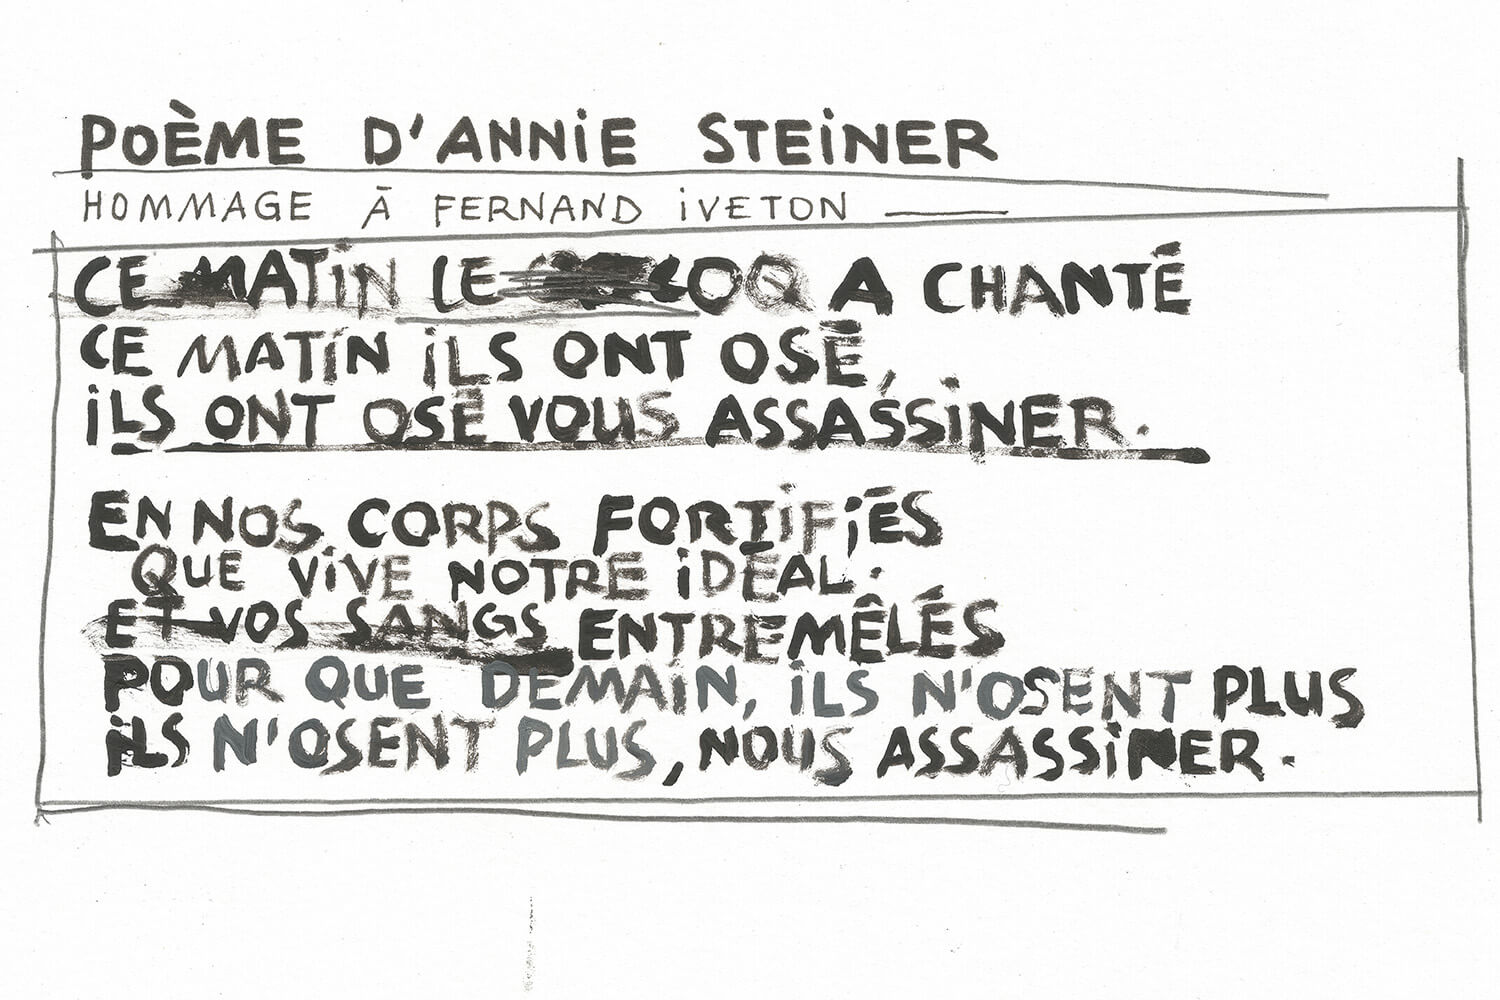 POÈME D'ANNiE STEiNER
HOMMAGE À FERNAND iVETON
CE MATiN LE COQ A CHANTÉ
CE MATiN iLS ONT OSÉ,
iLS ONT OSÉ VOUS ASSASSiNER.
EN NOS CORPS FORTiFiÉS
QUE ViVE NOTRE iDÉAL.
ET VOS SANGS ENTREMÊLÉS
POUR QUE DEMAiN, iLS N'OSENT PLUS
iLS N'OSENT PLUS, NOUS ASSASSiNER.